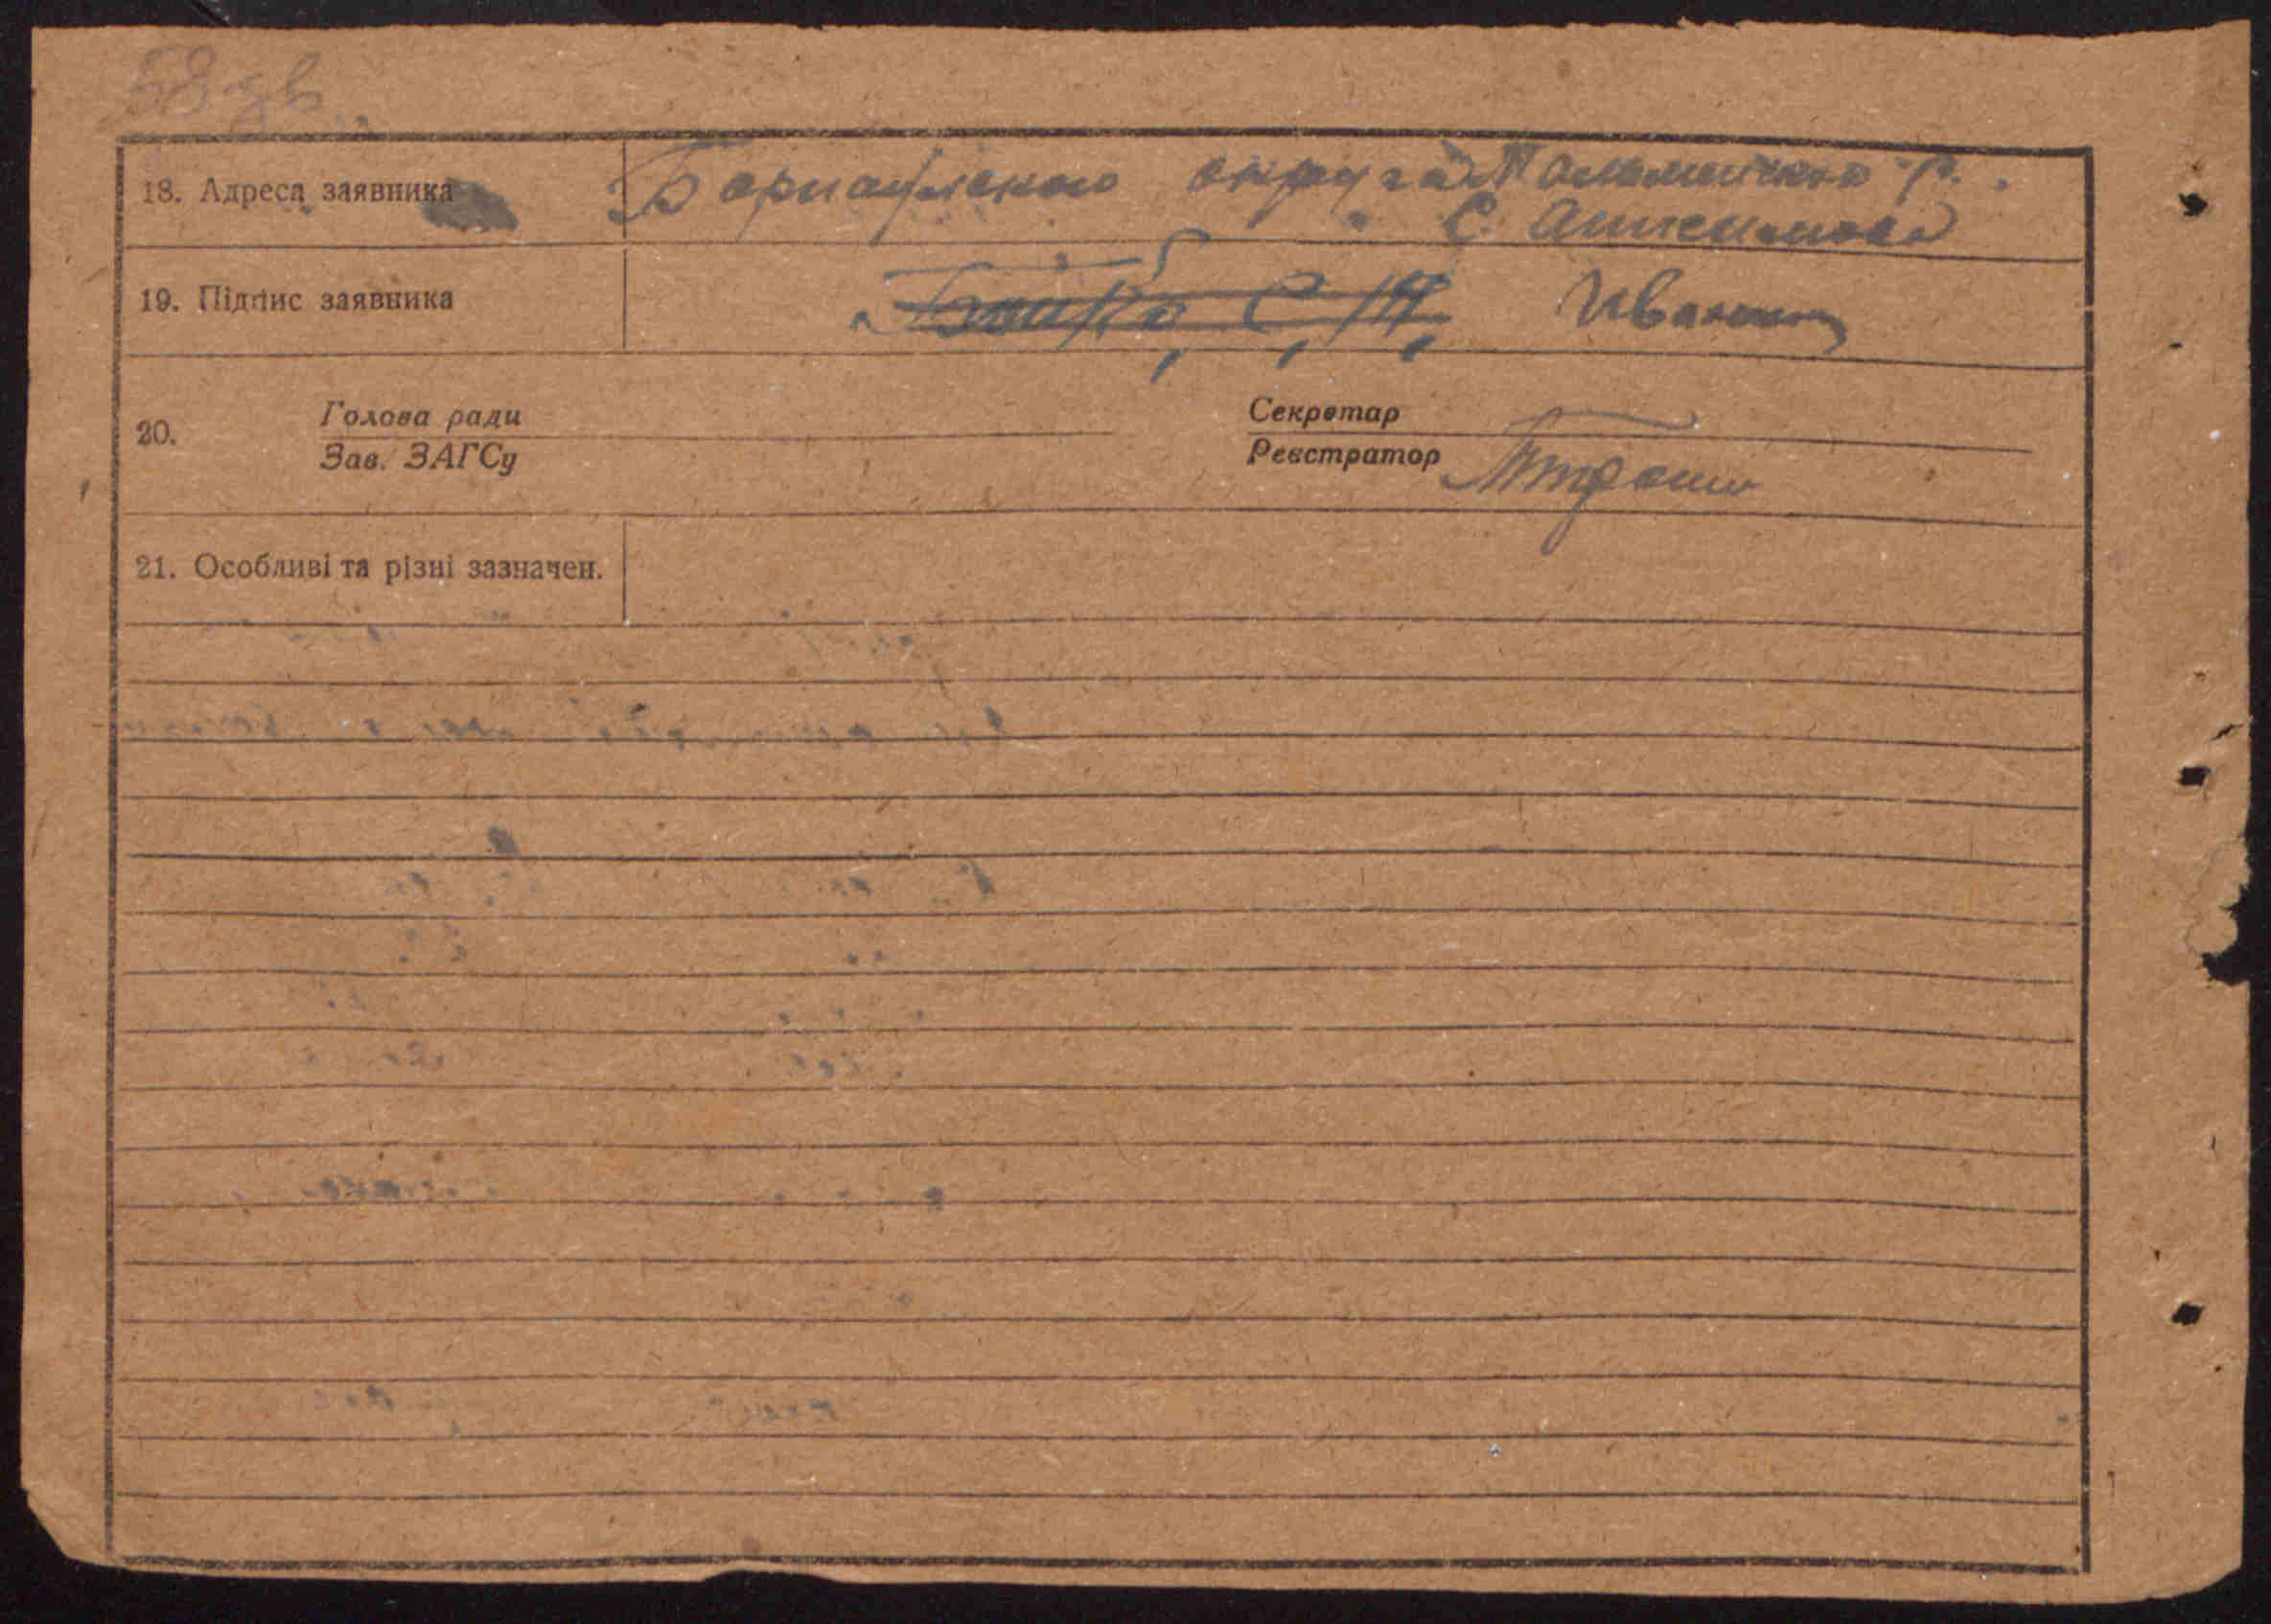 58 зв
18. Адреса заявника Барнаульского округа Тальменского р.
С. Анисимово
19. Підпис заявника Бойко С. Я. Иванин
20. Голова ради Секретар
Зав. ЗАГСу Реєстратор
21. Особливі та різні зазначен.